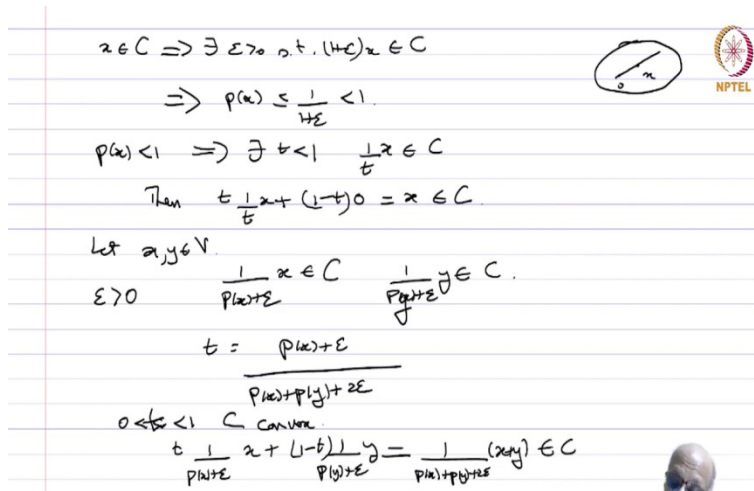 x ∈ C ⟹ ∃ ε>0 s.t. (1+ε)x ∈ C
⟹ p(x) ≤ 1/(1+ε) < 1.
p(x) < 1 ⟹ ∃ t<1 1/t x ∈ C
Then t 1/t x + (1-t)0 = x ∈ C.
Let x,y ∈ V.
ε>0 1/(p(x)+ε) x ∈ C 1/(p(y)+ε) y ∈ C.
t = (p(x)+ε)/(p(x)+p(y)+2ε)
0<t<1 C convex.
t 1/(p(x)+ε) x + (1-t) 1/(p(y)+ε) y = 1/(p(x)+p(y)+2ε) (x+y) ∈ C
0 x
NPTEL